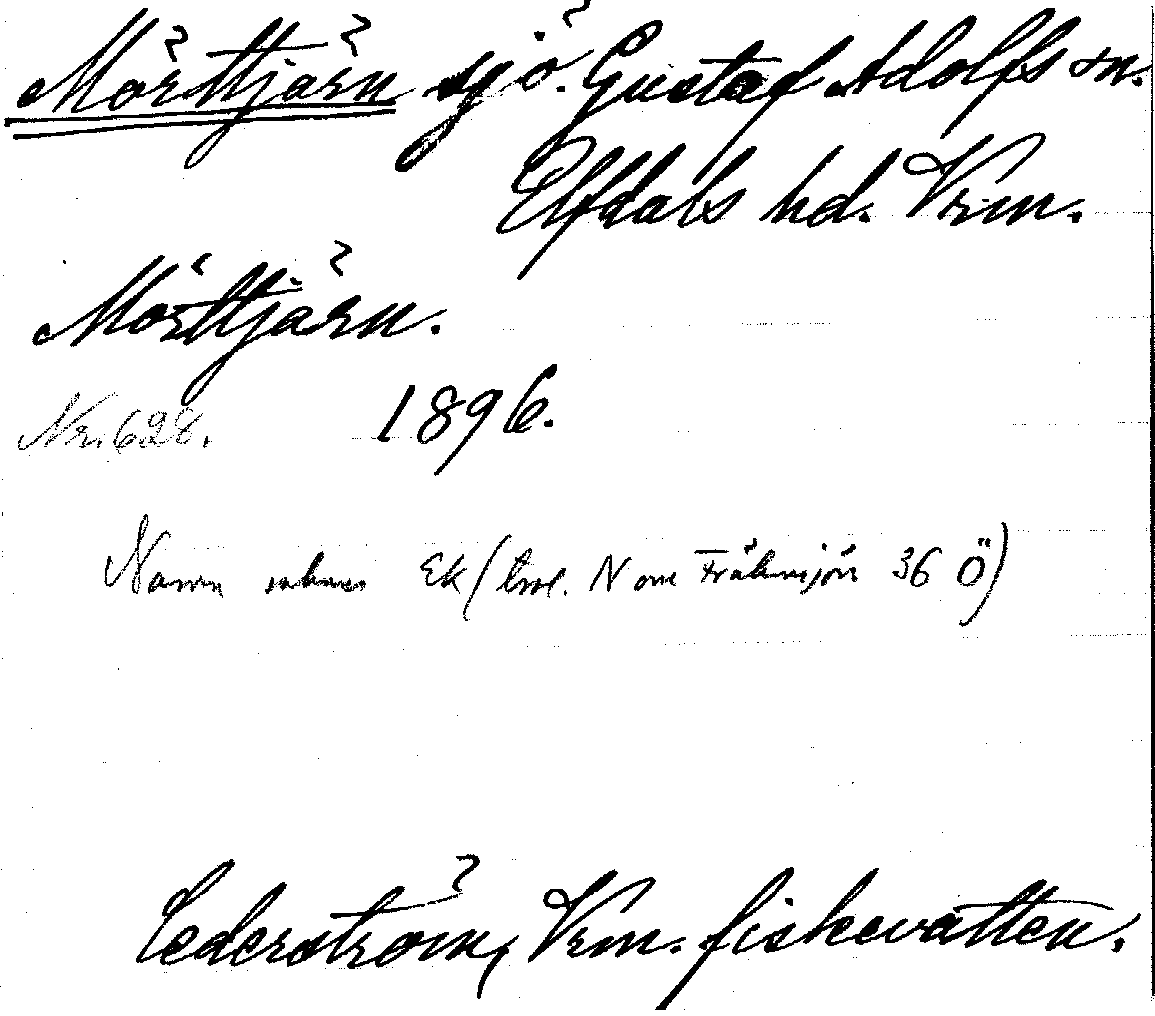 Mörttjärn sjö. Gustaf Adolfs sn.
Elfdals hd. Vrm.
Mörttjärn.
Nr. 628. 1896.
Namn saknas Ek (trol. N om Fräkensjön 36 Ö)
Cederström, Vrm. fiskevatten.